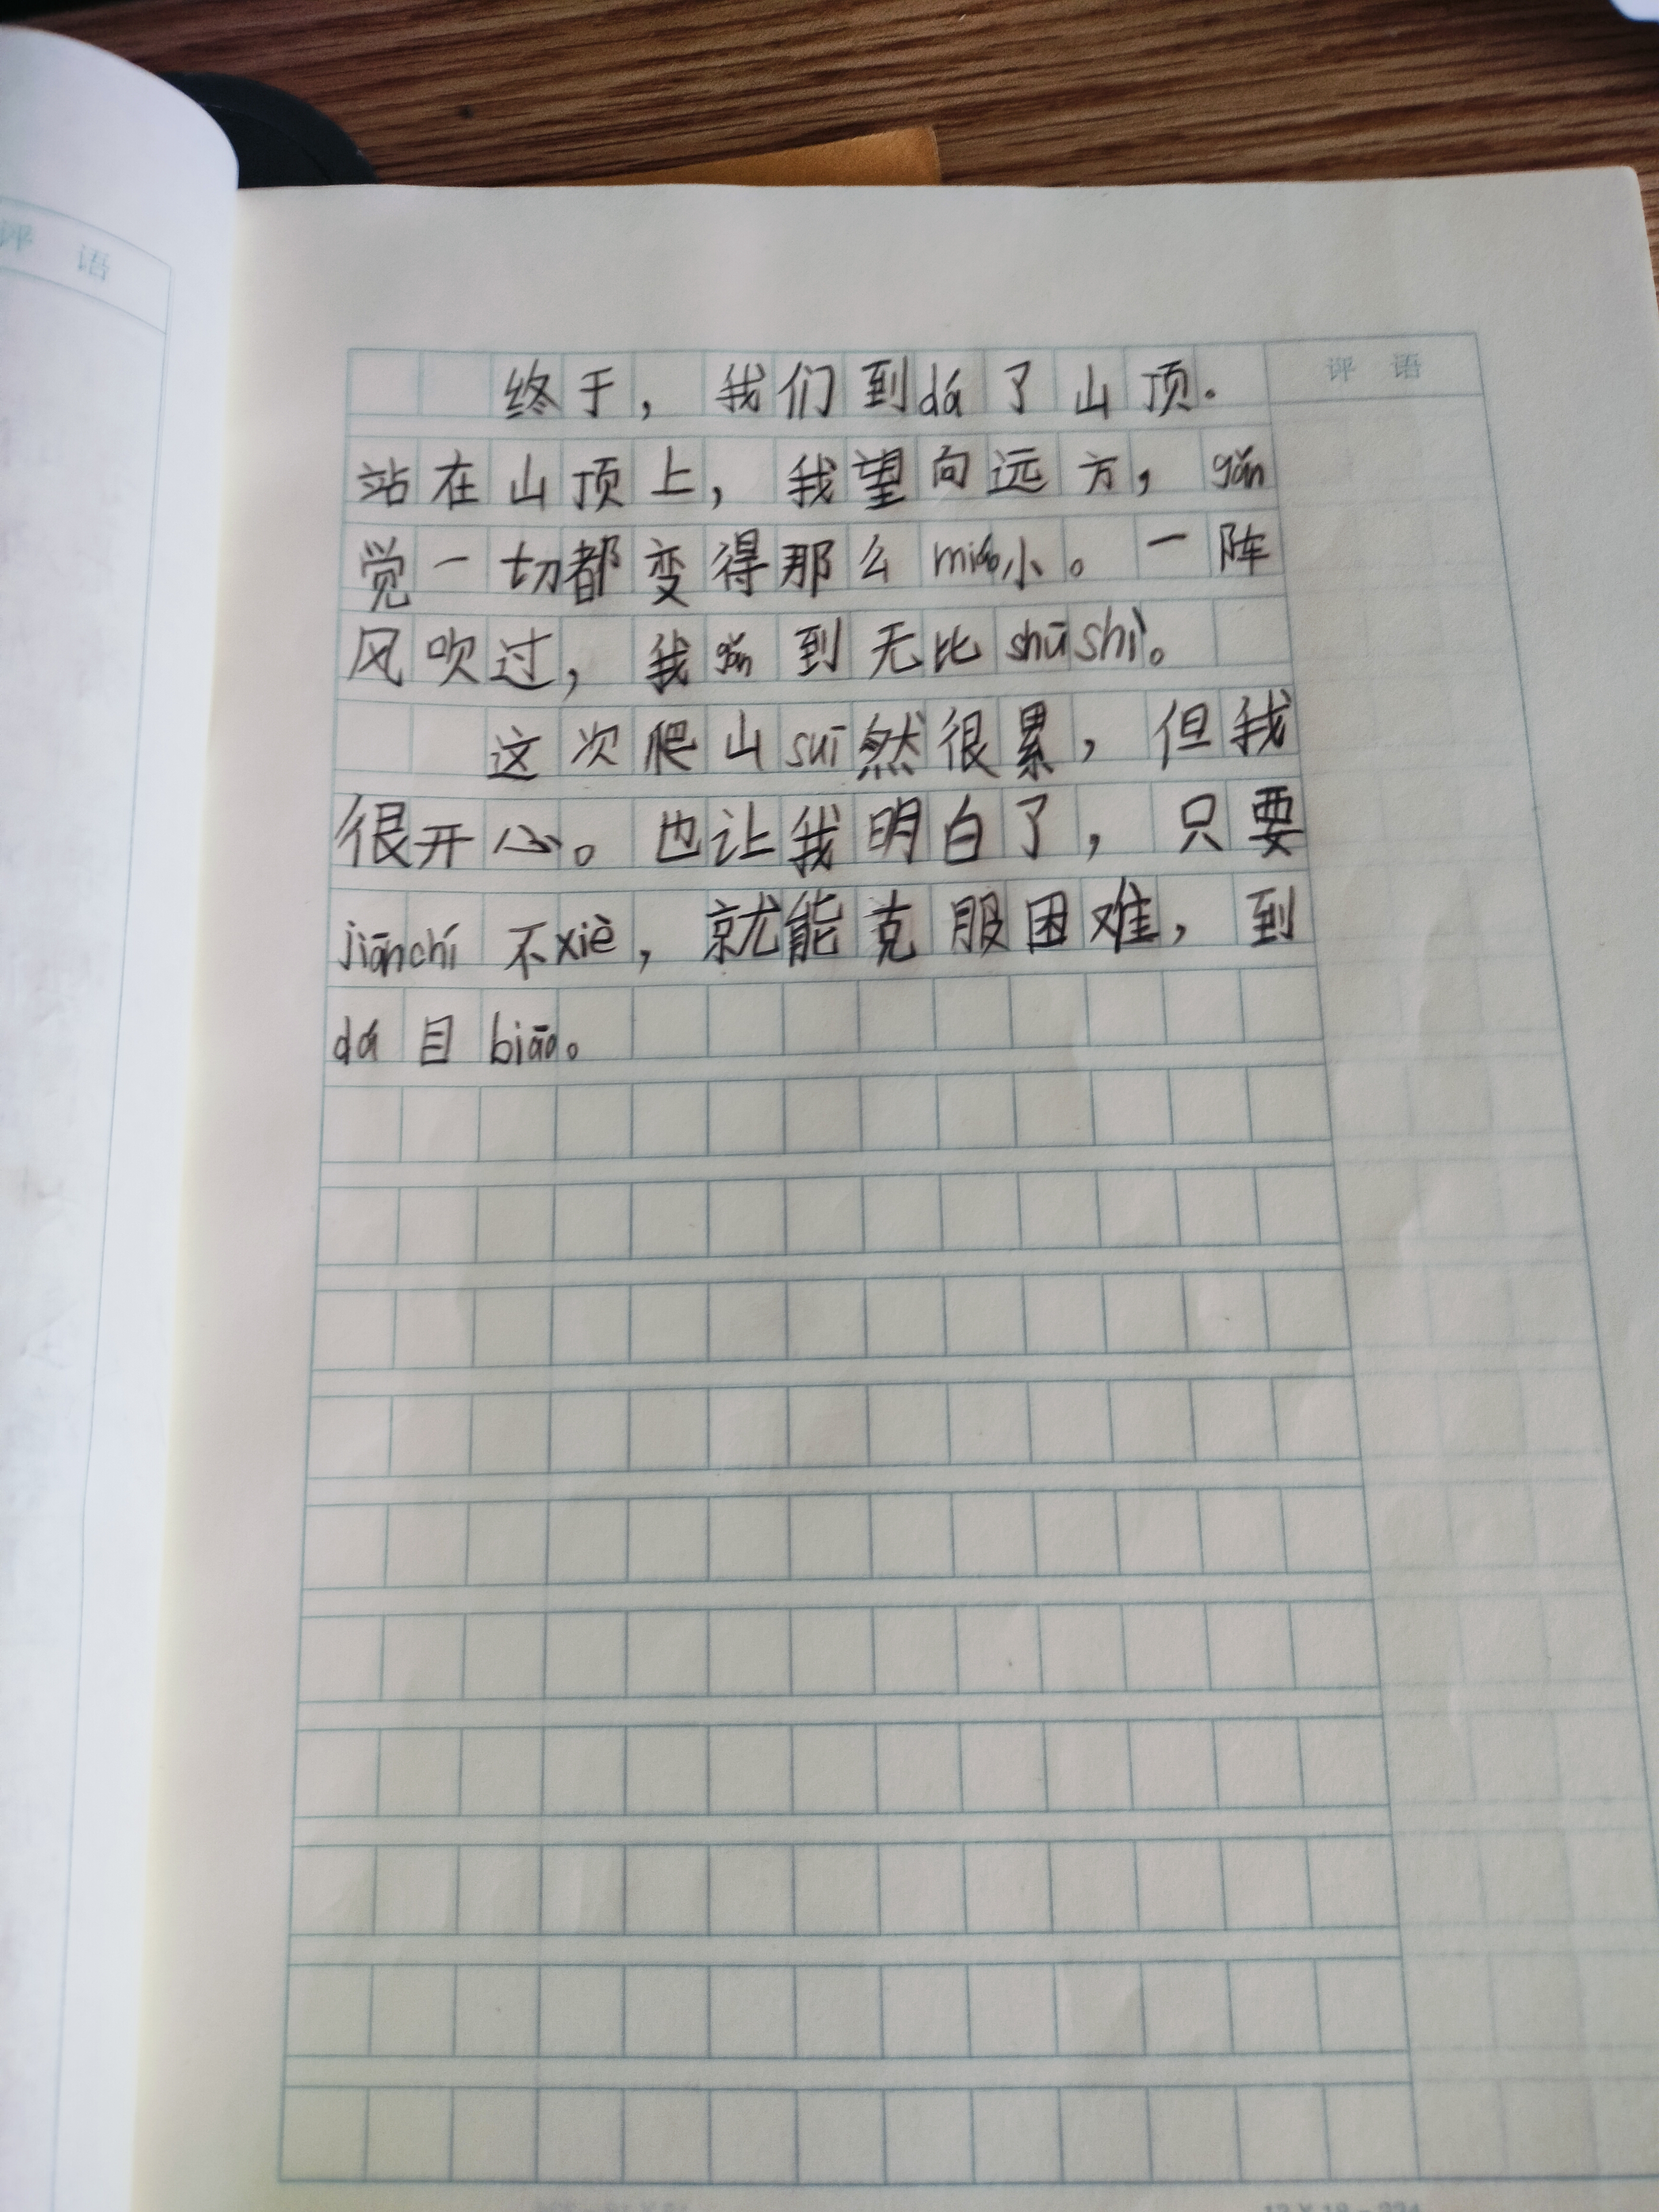 评 语
评 语
终于，我们到dá了山顶.
站在山顶上，我望向远方，gǎn
觉一切都变得那么miǎo小。一阵
风吹过，我gǎn到无比shūshì。
这次爬山suī然很累，但我
很开心。也让我明白了，只要
jiānchí不xiè，就能克服困难，到
dá目biāo。